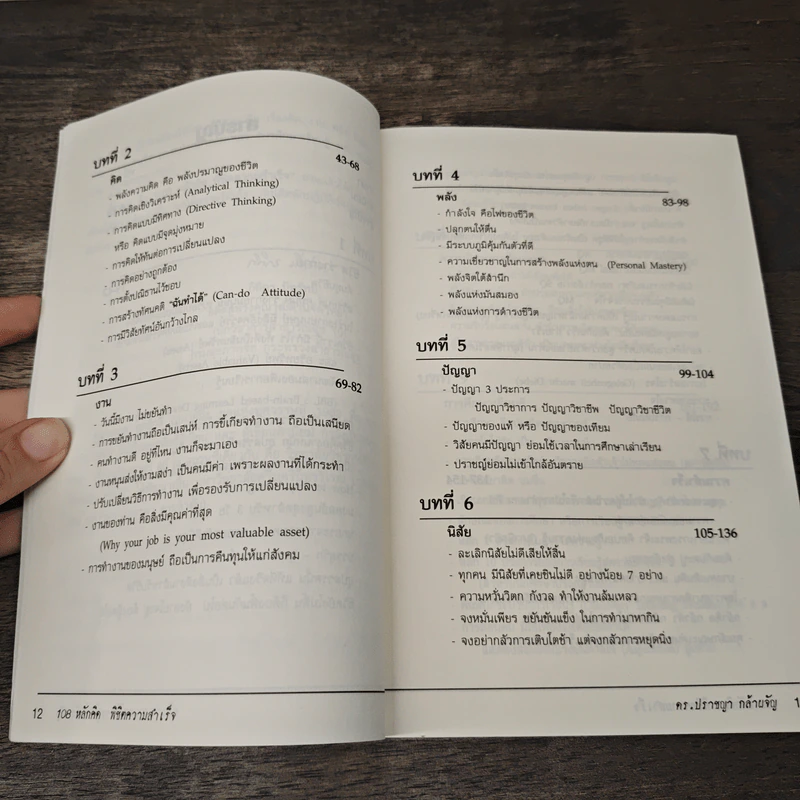 บทที่ 2
คิด 43-68
- พลังความคิด คือ พลังปรมาณูของชีวิต
- การคิดเชิงวิเคราะห์ (Analytical Thinking)
- การคิดแบบมีทิศทาง (Directive Thinking)
หรือ คิดแบบมีจุดมุ่งหมาย
- การคิดให้ทันต่อการเปลี่ยนแปลง
- การคิดอย่างถูกต้อง
- การตั้งปณิธานไว้ชอบ
- การสร้างทัศนคติ "ฉันทำได้" (Can-do Attitude)
- การมีวิสัยทัศน์อันกว้างไกล
บทที่ 3
งาน 69-82
- วันนี้มีงาน ไม่ขยันทำ
- การขยันทำงานถือเป็นเสน่ห์ การขี้เกียจทำงาน ถือเป็นเสนียด
- คนทำงานดี อยู่ที่ไหน งานก็จะมาเอง
- งานหนุนส่งให้งามสง่า เป็นคนมีค่า เพราะผลงานที่ได้กระทำ
- ปรับเปลี่ยนวิธีการทำงาน เพื่อรองรับการเปลี่ยนแปลง
- งานของท่าน คือสิ่งมีคุณค่าที่สุด
(Why your job is your most valuable asset)
- การทำงานของมนุษย์ ถือเป็นการคืนทุนให้แก่สังคม
12 108 หลักคิด พิชิตความสำเร็จ
บทที่ 4
พลัง 83-98
- กำลังใจ คือไฟของชีวิต
- ปลุกตนให้ตื่น
- มีระบบภูมิคุ้มกันตัวที่ดี
- ความเชี่ยวชาญในการสร้างพลังแห่งตน (Personal Mastery)
- พลังจิตใต้สำนึก
- พลังแห่งมันสมอง
- พลังแห่งการดำรงชีวิต
บทที่ 5
ปัญญา 99-104
- ปัญญา 3 ประการ
ปัญญาวิชาการ ปัญญาวิชาชีพ ปัญญาวิชาชีวิต
- ปัญญาของแท้ หรือ ปัญญาของเทียม
- วิสัยคนมีปัญญา ย่อมใช้เวลาในการศึกษาเล่าเรียน
- ปราชญ์ย่อมไม่เข้าใกล้อันตราย
บทที่ 6
นิสัย 105-136
- ละเลิกนิสัยไม่ดีเสียให้สิ้น
- ทุกคน มีนิสัยที่เคยชินไม่ดี อย่างน้อย 7 อย่าง
- ความหวั่นวิตก กังวล ทำให้งานล้มเหลว
- จงหมั่นเพียร ขยันขันแข็ง ในการทำมาหากิน
- จงอย่ากลัวการเติบโตช้า แต่จงกลัวการหยุดนิ่ง
ดร.ปราชญา กล้าผจัญ